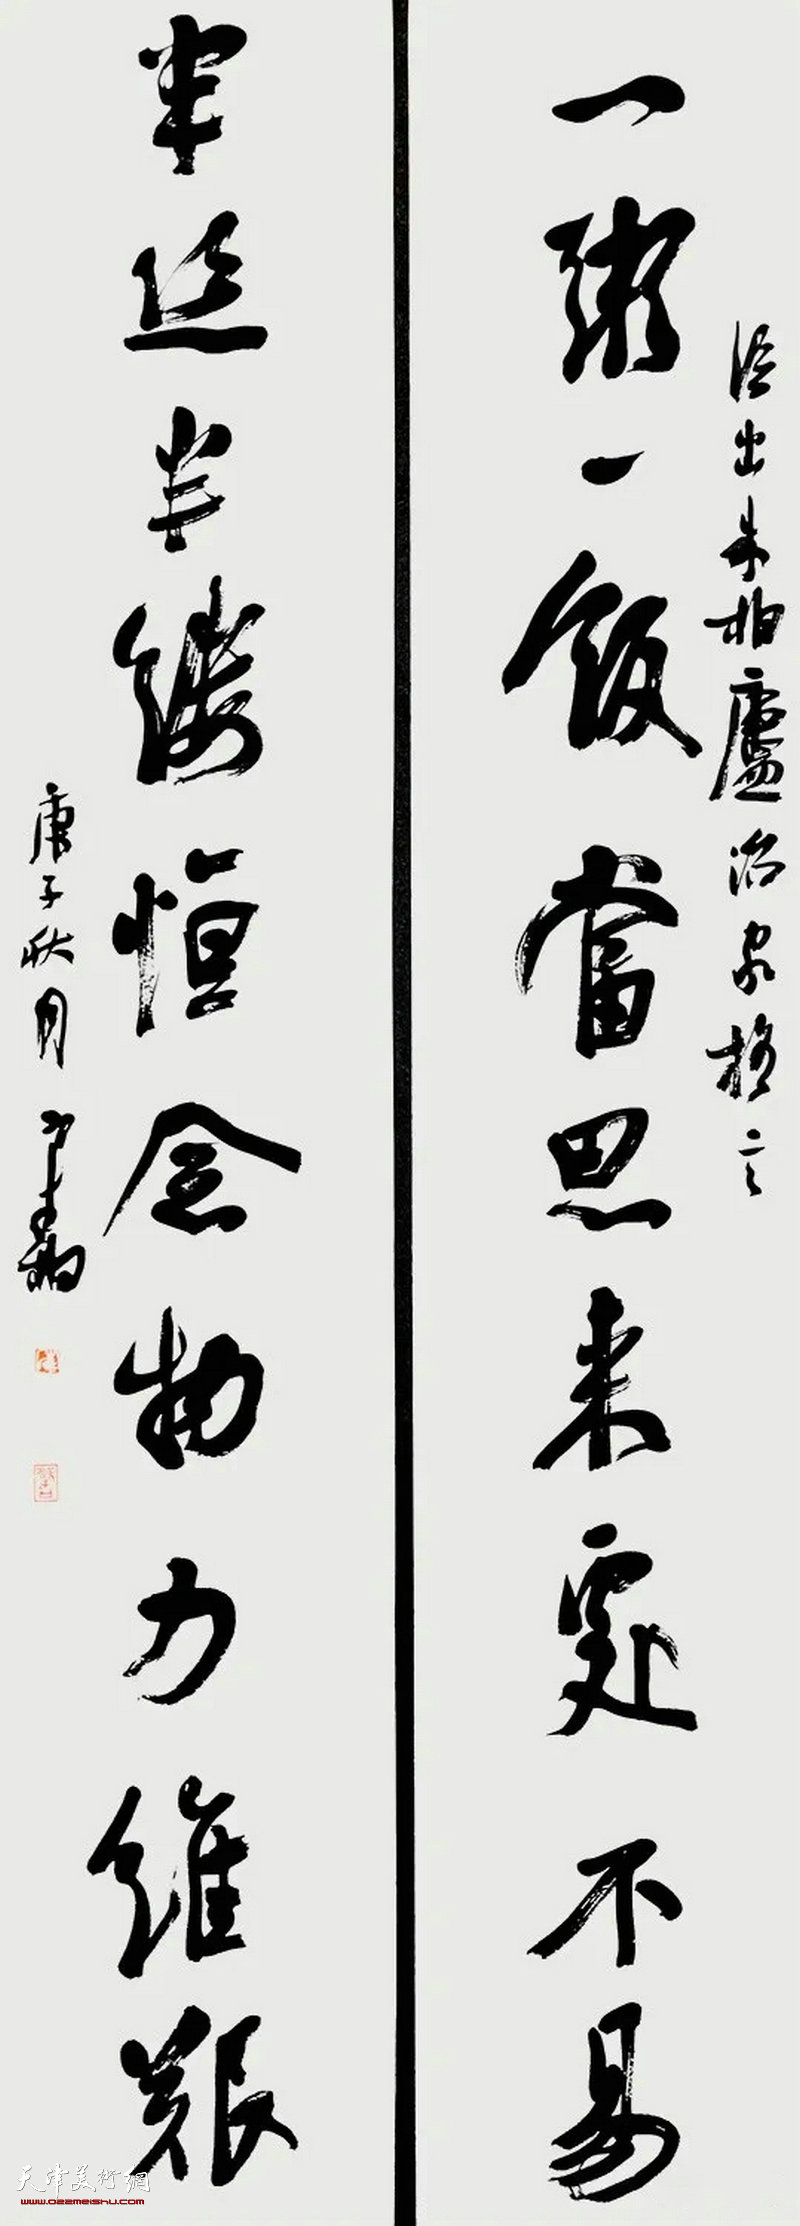 一粥一飯當思来處不易
語出朱柏廬治家格言
半丝半縷恒念物力維艱
庚子秋月
天津美術網
www.022meishu.com